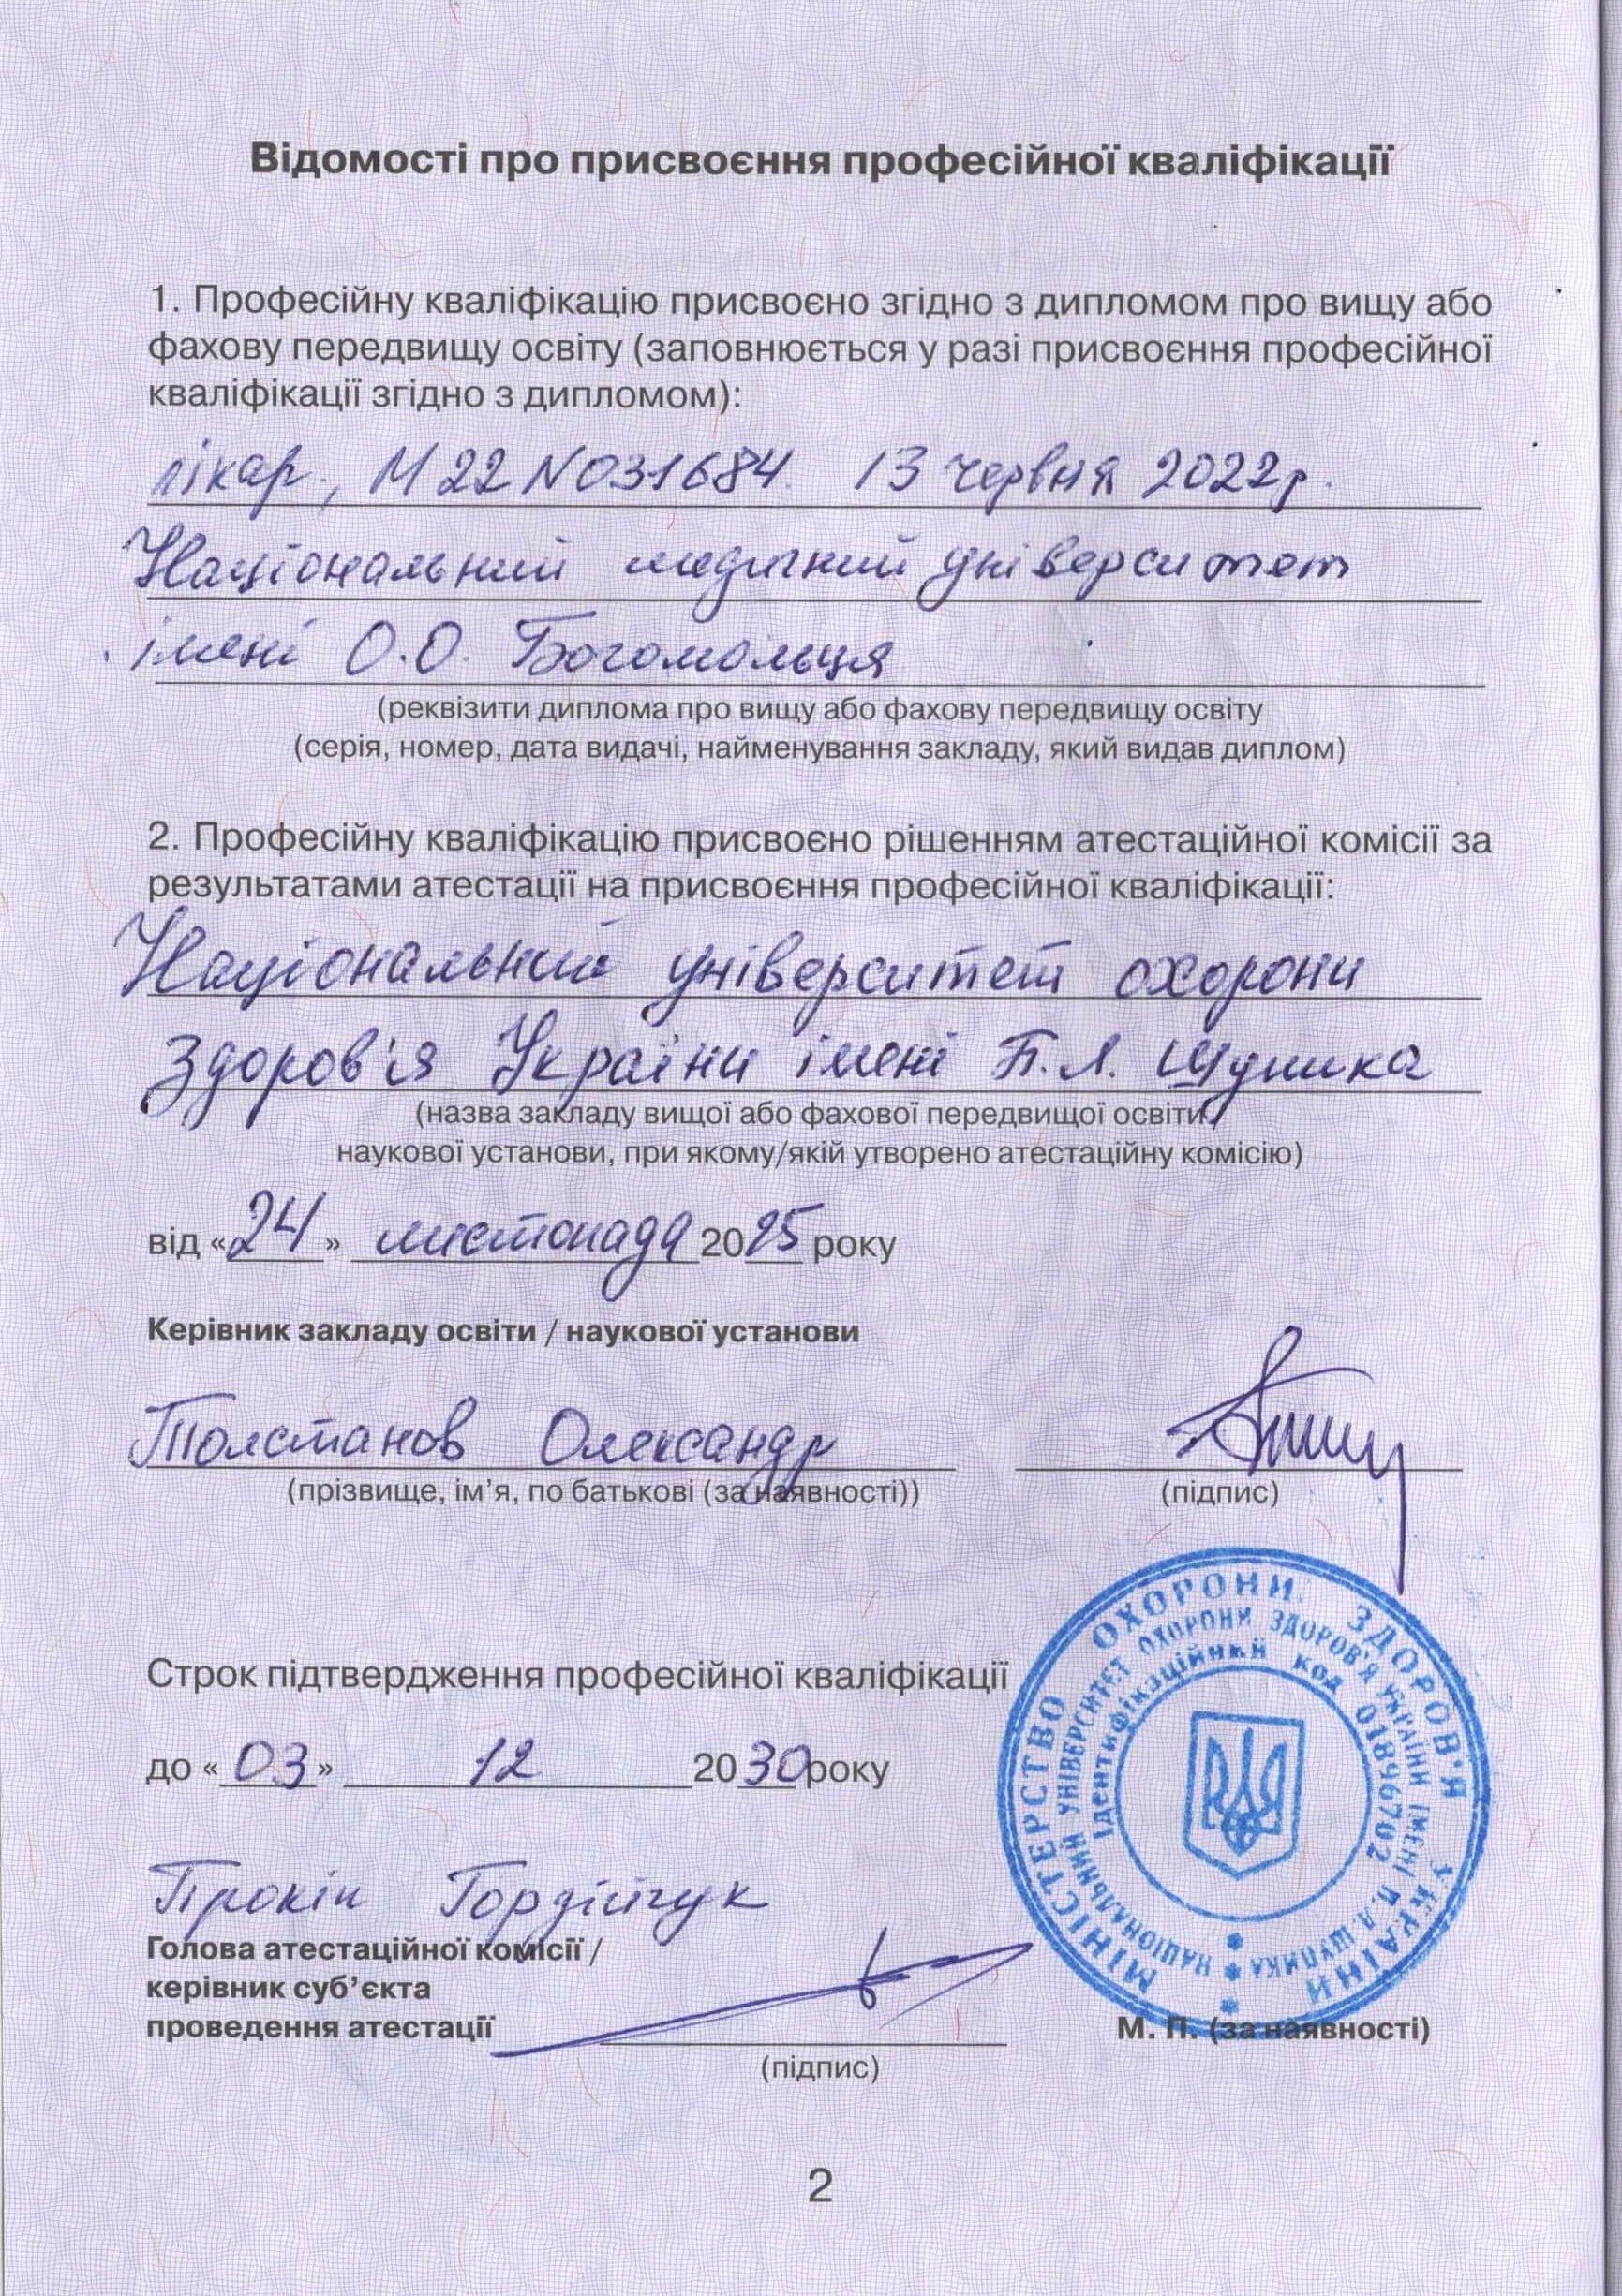 Відомості про присвоєння професійної кваліфікації
1. Професійну кваліфікацію присвоєно згідно з дипломом про вищу або
фахову передвищу освіту (заповнюється у разі присвоєння професійної
кваліфікації згідно з дипломом):
лікар, М22 N031684. 13 червня 2022р.
Національний медичний університет
імені О.О. Богомольця
(реквізити диплома про вищу або фахову передвищу освіту
(серія, номер, дата видачі, найменування закладу, який видав диплом)
2. Професійну кваліфікацію присвоєно рішенням атестаційної комісії за
результатами атестації на присвоєння професійної кваліфікації:
Національний університет охорони
здоров'я України імені П.Л. Шупика
(назва закладу вищої або фахової передвищої освіти,
наукової установи, при якому/якій утворено атестаційну комісію)
від «24» листопада 2025 року
Керівник закладу освіти / наукової установи
Толстанов Олександр
(прізвище, ім’я, по батькові (за наявності))
(підпис)
МІНІСТЕРСТВО ОХОРОНИ ЗДОРОВ'Я УКРАЇНИ
НАЦІОНАЛЬНИЙ УНІВЕРСИТЕТ ОХОРОНИ ЗДОРОВ'Я УКРАЇНИ ІМЕНІ П.Л. ШУПИКА
Ідентифікаційний код 01896702
Строк підтвердження професійної кваліфікації
до «03» 12 2030 року
Прокіп Гордійчук
Голова атестаційної комісії /
керівник суб’єкта
проведення атестації
М. П. (за наявності)
(підпис)
2